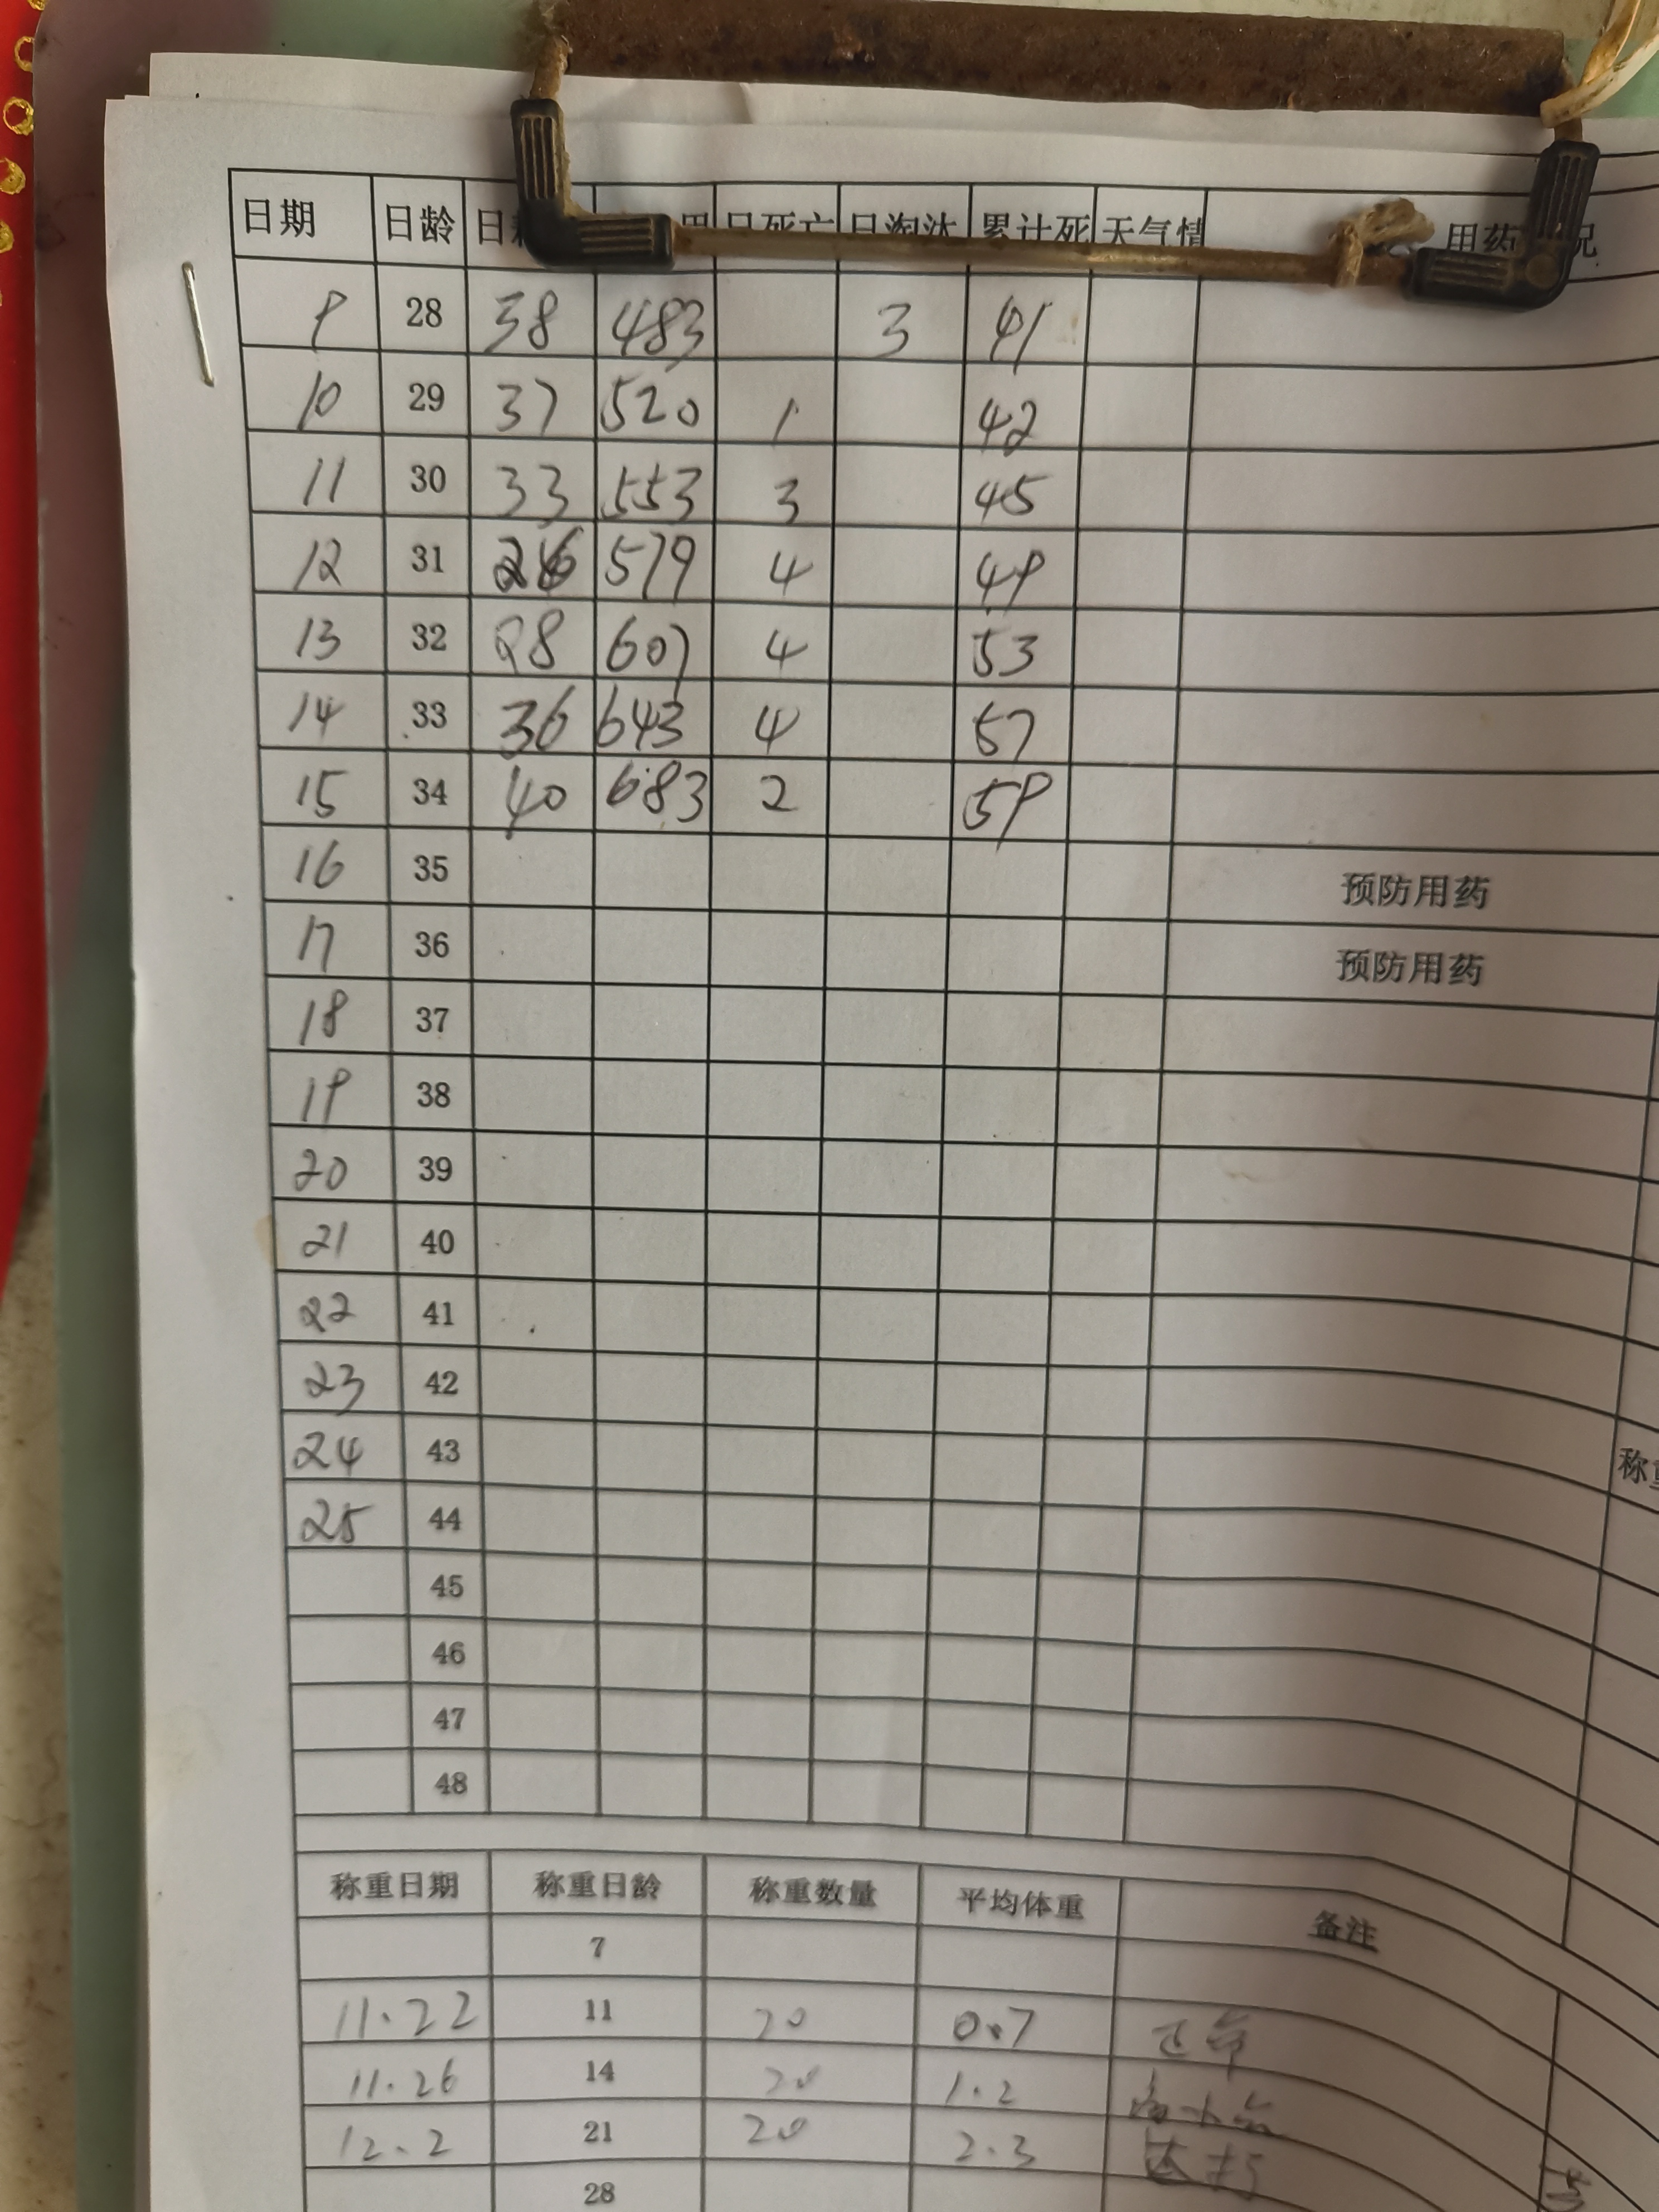 日期 日龄 日 日死亡 日淘汰 累计死 天气情 用药 况
9 28 38 483 3 41
10 29 37 520 1 42
11 30 33 553 3 45
12 31 26 579 4 49
13 32 28 607 4 53
14 33 36 643 4 57
15 34 40 683 2 59
16 35 预防用药
17 36 预防用药
18 37
19 38
20 39
21 40
22 41
23 42
24 43
称重
25 44
45
46
47
48
称重日期 称重日龄 称重数量 平均体重 备注
7
11.22 11 20 0.7 正常
11.26 14 20 1.2
12.2 21 20 2.3 达标
28